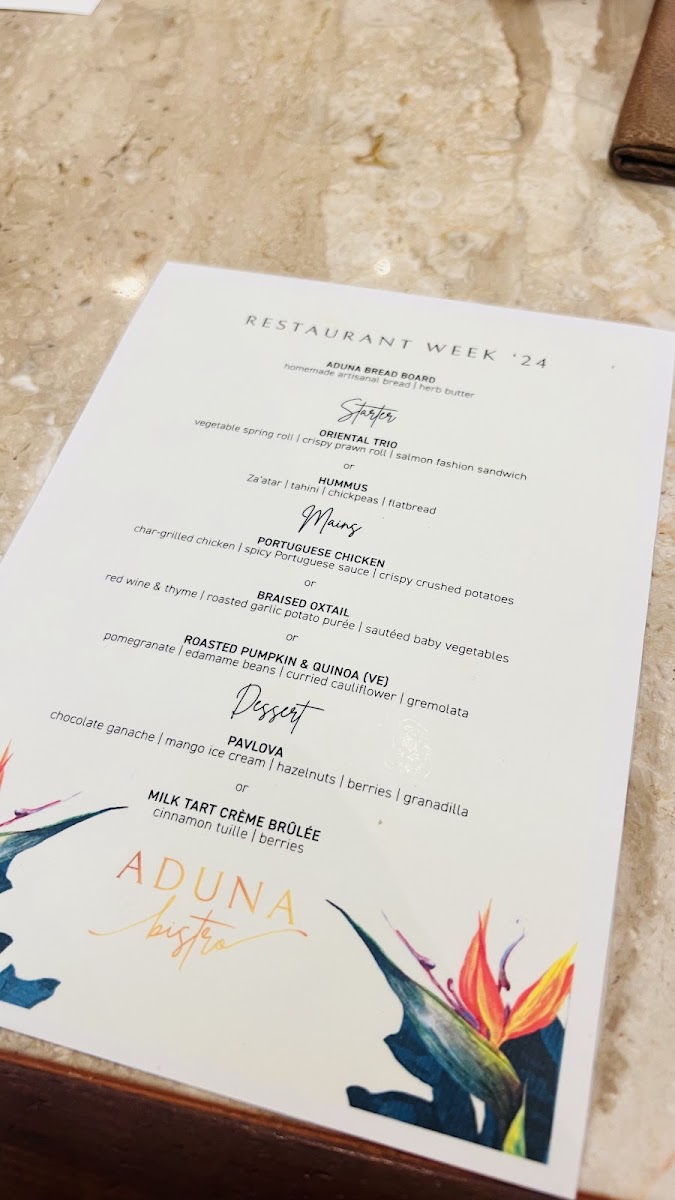 RESTAURANT WEEK '24
ADUNA BREAD BOARD
homemade artisanal bread | herb butter
Starter
ORIENTAL TRIO
vegetable spring roll | crispy prawn roll | salmon fashion sandwich
or
HUMMUS
Za'atar | tahini | chickpeas | flatbread
Mains
PORTUGUESE CHICKEN
char-grilled chicken | spicy Portuguese sauce | crispy crushed potatoes
or
BRAISED OXTAIL
red wine & thyme | roasted garlic potato purée | sautéed baby vegetables
or
ROASTED PUMPKIN & QUINOA (VE)
pomegranate | edamame beans | curried cauliflower | gremolata
Dessert
PAVLOVA
chocolate ganache | mango ice cream | hazelnuts | berries | granadilla
or
MILK TART CRÈME BRÛLÉE
cinnamon tuille | berries
ADUNA
bistro